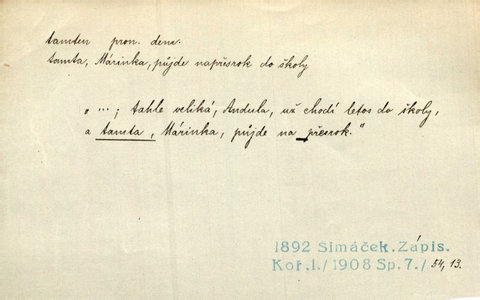 tamten pron. dem.
tamta, Márinka, půjde napřesrok do školy
„ ...; tahle veliká, Andula, už chodí letos do školy,
a tamta, Márinka, půjde na přesrok."
1892 Šimáček. Zápis.
Koř. I./1908 Sp. 7./ 54, 13.